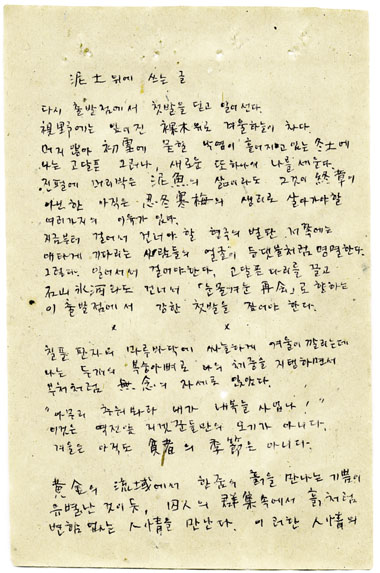 泥土위에 쓰는 글
다시 출발점에서 첫발을 딛고 일어선다.
視野에는 잎이 진 裸木위로 겨울하늘이 차다.
머지 않아 初雪에 묻힐 낙엽이 흩어지고 있는 冬土에
나는 고달픈 그러나, 새로운 또하나의 나를 세운다.
진펄에 머리박은 泥魚의 삶이라도 그것이 終章이
아닌한 아직은 忍冬 寒梅의 생리로 살아가야할
여러가지의 이유가 있다.
지금부터 걸어서 건너야 할 형극의 벌판 저쪽에는
애타게 기다리는 사람들의 얼굴이 등댓불처럼 명멸한다.
그렇다. 일어서서 걸어야한다. 고달픈 다리를 끌고
石山 氷河라도 건너서 「눈물겨운 再会」로 향하는
이 출발점에서 강한 첫발을 딛어야 한다.
x x
칠폴 판자의 마루바닥에 싸늘하게 겨울이 깔리는데
나는 두개의 복숭아뼈로 나의 체중을 지탱하면서
부처처럼 無念의 자세로 앉았다.
"아무리 추워봐라 내가 내복을 사입나!"
이것은 역전앞 지겟꾼들만의 오기가 아니다.
겨울은 아직도 貧者의 季節은 아니다.
黃金의 流域에서 한줌의 흙을 만나는 기쁨이
유별난 것이듯, 囚人의 群集속에서 흙처럼
변함 없는 人情을 만난다. 이러한 人情의